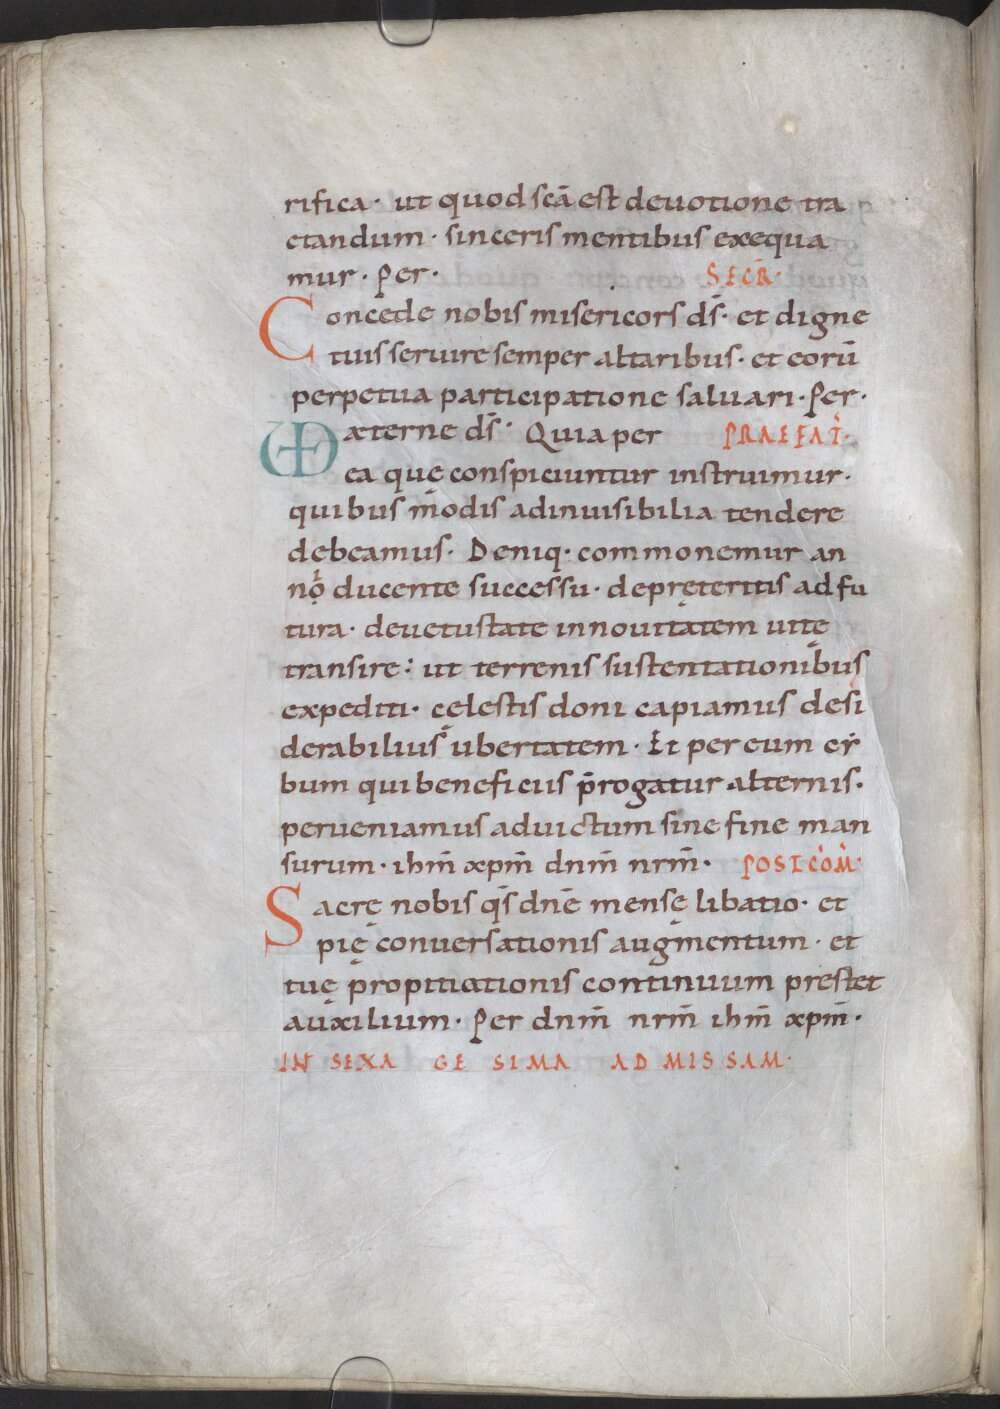 rifica· ut quod scā est deuotione tra
ctandum· sinceris mentibus exequa
mur· Per· SECR̄·
Concede nobis misericors ds̄· et digne
tuis seruire semper altaribus· et eorū
perpetua participatione saluari· Per·
æterne ds̄· Quia per PRAEFAT·
ea quę conspiciuntur instruimur·
quibus modis adinuisibilia tendere
debeamus· Deniq· commonemur an
no ducente successu· depręteritis adfu
tura· deuetustate innouitatem uitę
transire: ut terrenis sustentationibus
expediti· cęlestis doni capiamus desi
derabilius ubertatem· Et per eum cy
bum qui beneficiis p̄rogatur alternis·
perueniamus aduictum sine fine man
surum· ihm̄ xpm̄ dnm̄ nrm̄· POSTCOM̄·
Sacrę nobis qs̄ dnē mensę libatio· et
pię conuersationis augmentum· et
tuę propitiationis continuum prestet
auxilium· Per dnm̄ nrm̄ ihm̄ xpm̄·
IN SEXA GE SIMA AD MISSAM·